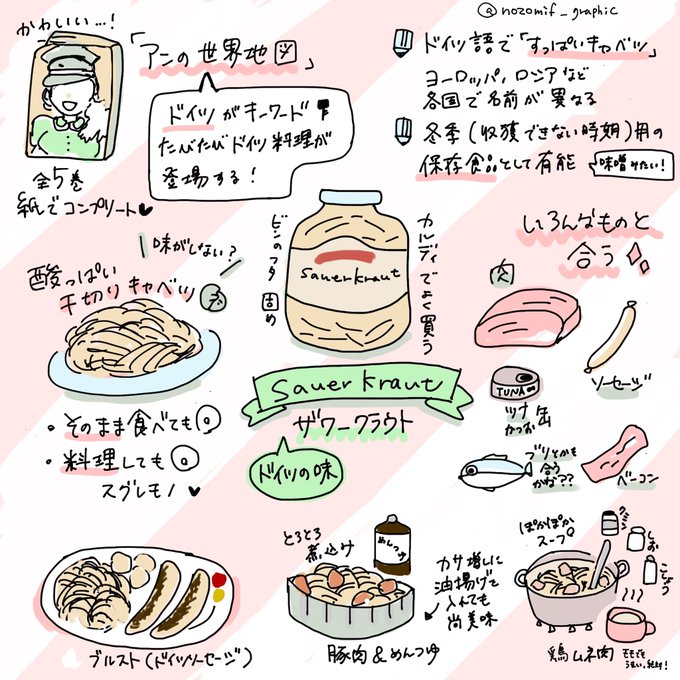 @nozomif_graphic
かわいい…!
「アンの世界地図」
ドイツがキーワード
たびたびドイツ料理が
登場する!
全5巻
紙でコンプリート♥
ドイツ語で「すっぱいキャベツ」
ヨーロッパ, ロシアなど
各国で名前が異なる
冬季(収獲できない時期)用の
保存食品として有能
味噌みたい!
味がしない?
酸っぱい
千切りキャベツ
ビンのフタ固め
sauerkraut
カルディでよく買う
いろんなものと
合う
肉
ソーセージ
TUNA
ツナ缶
かつお
ブリとかも
合う
かな??
ベーコン
sauerkraut
ザワークラウト
ドイツの味
・そのまま食べても
・料理しても
スグレモノ♥
ブルスト(ドイツソーセージ)
とろとろ
煮込け
めんつゆ
カサ増しに
油揚げて
入れても
尚美味
豚肉&めんつゆ
ぽかぽか
スープ
クミン
しお
こしょう
鶏ムネ肉